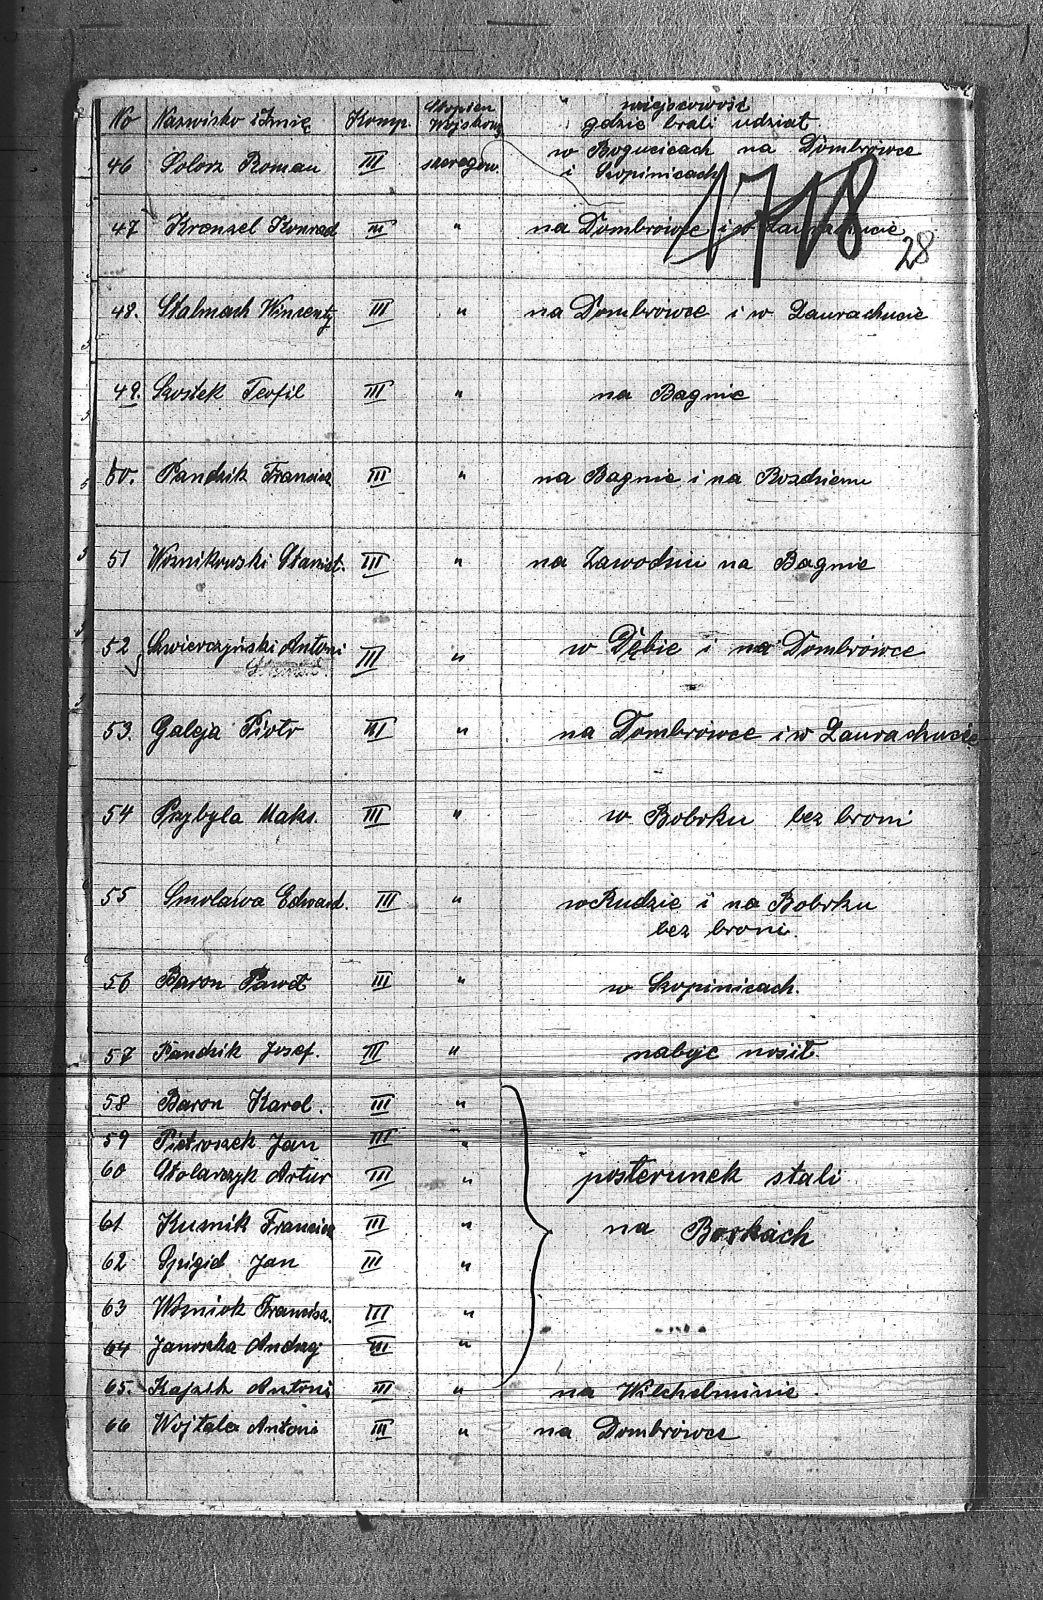 No Nazwisko i Imię Komp. Stopien Wojskowy miejscowość gdzie brali udział
46 Solorz Roman III szeregow. w Bogucicach na Dombrowce
i Szopinicach
1718
47 Kronsel Konrad III " na Dombrowce i w Laurahucie
28
48. Stalmach Winsenty III " na Dombrowce i w Laurachucie
49. Szostek Teofil III " na Bagnie
50. Pandzik Francisz III " na Bagnie i na Rozdzieniu
51 Woznikowski Stanisł. III " na Zawodziu na Bagnie
52 Szwierczyński Antoni III " w Dębie i na Dombrowce
53. Galeja Piotr III " na Dombrowce i w Laurachucie
54 Przybyla Maks. III " w Bobrku bez broni
55 Smolawa Edward. III " w Rudzie i na Bobrku
bez broni.
56 Baron Paweł III " w Szopinicach.
57 Pandzik Josef. III " naboje nosił
58 Baron Karol. III "
59 Pietroszek Jan III "
60 Stolarczyk Artur III " posterunek stali
61 Kusnik Francisz III " na Borkach
62 Spigiel Jan III "
63 Wozniok Francisz. III "
64 Janoszka Andrzej III "
65. Kajzik Antoni III " na Wilchelminie.
66 Wojtala Antoni III " na Dombrowce